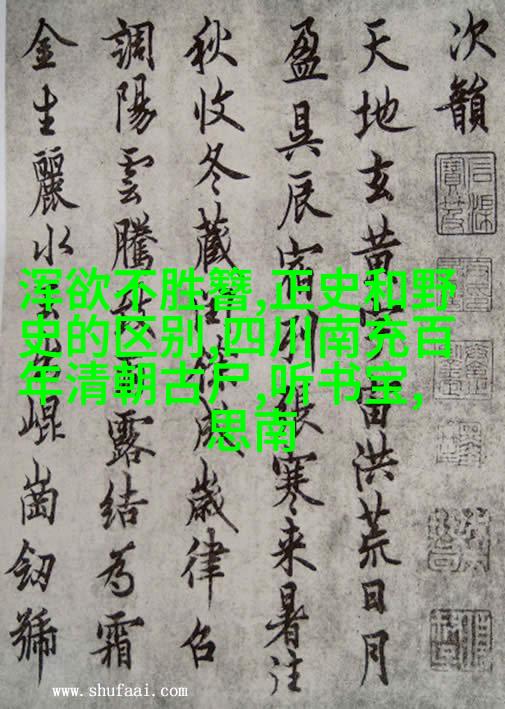 次韻
天地玄黄洪荒日月
盈昃辰宿列張寒来暑往
秋收冬藏成歲律召
調陽雲騰露結為霜
金生麗水崐崗劒號
浑欲不胜簪,正史和野
史的区别,四川南充百
年清朝古尸,听书宝,
思南
www.shufaai.com